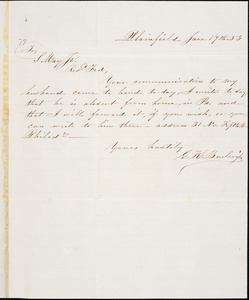 Plainfield, Jan 17th 53
S. May Jr.
Your communication to my
husband came to hand to day, I write to day
that he is absent from home, in Pa and
that I will forward it, if you wish, or you
can write to him there - address 31 No Fifth St
Philad a
Yours hastily